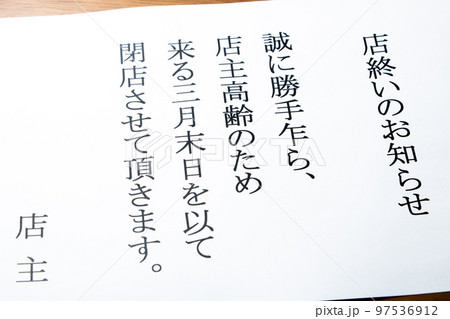 店終いのお知らせ
誠に勝手乍ら、
店主高齢のため
来る三月末日を以て
閉店させて頂きます。
店主
PIXTA
pixta.jp - 97536912